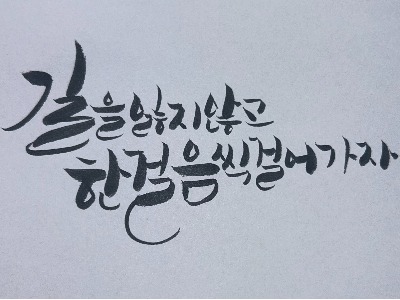 길을 잃지 않고
한걸음씩 걸어가자